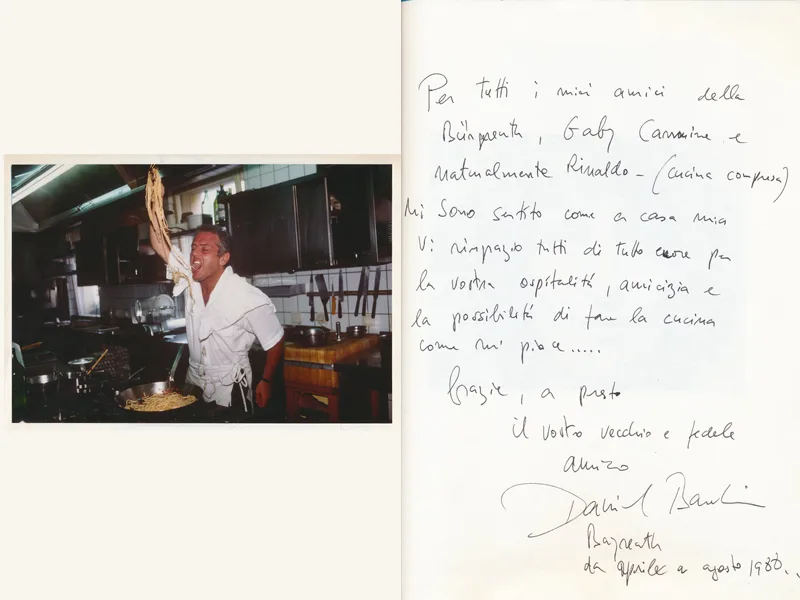 Per tutti i miei amici della
Bürgerreuth, Gaby Carmine e
naturalmente Rinaldo - (cucina compresa)
Mi sono sentito come a casa mia
Vi ringrazio tutti di tutto cuore per
la vostra ospitalità, amicizia e
la possibilità di fare la cucina
come mi piace.....
Grazie, a presto
il vostro vecchio e fedele
amico
Daniel
Bayreuth
da aprile a agosto 1988.